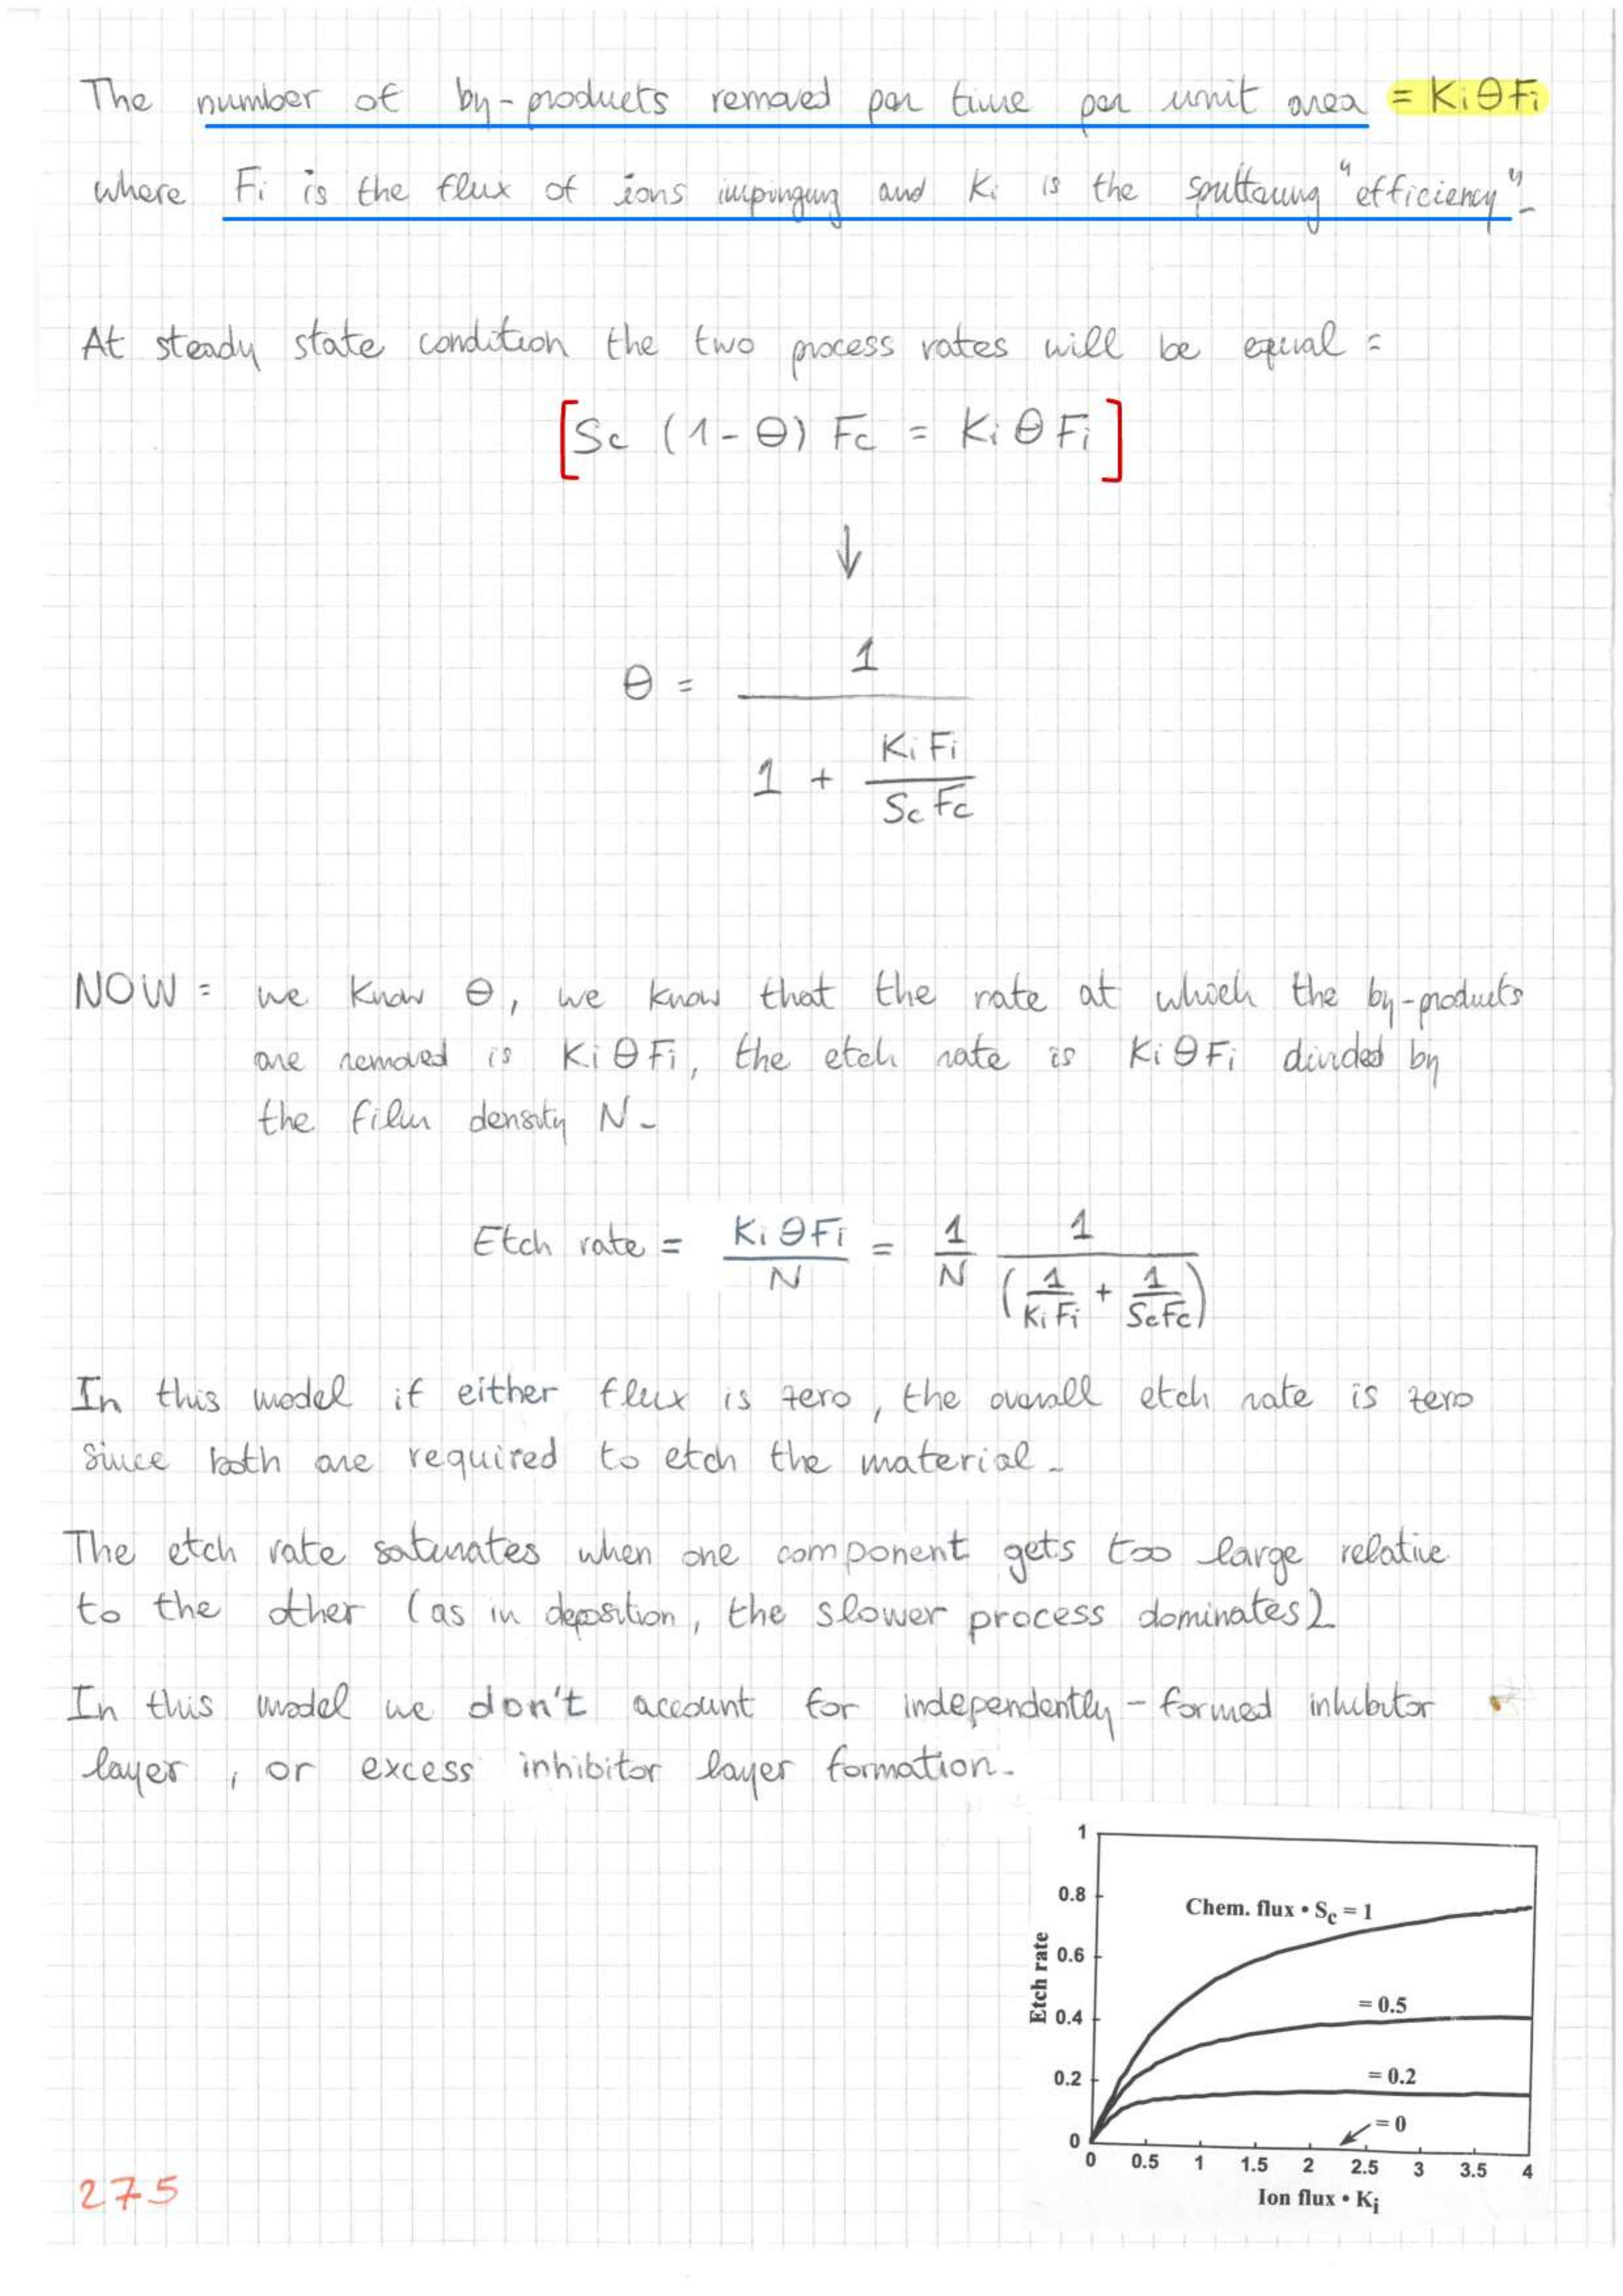 The number of by-products removed per time per unit area = KiθFi
where Fi is the flux of ions impinging and Ki is the sputtering "efficiency".
At steady state condition the two process rates will be equal =
[Sc (1-θ) Fc = Ki θ Fi]
↓
θ = 1 / (1 + KiFi / ScFc)
NOW = we know θ, we know that the rate at which the by-products
are removed is KiθFi, the etch rate is KiθFi divided by
the film density N-
Etch rate = KiθFi / N = 1/N 1 / (1/KiFi + 1/ScFc)
In this model if either flux is zero, the overall etch rate is zero
since both are required to etch the material-
The etch rate saturates when one component gets too large relative
to the other (as in deposition, the slower process dominates).
In this model we don't account for independently-formed inhibitor
layer, or excess inhibitor layer formation-
1
0.8
0.6
0.4
0.2
0
Etch rate
Chem. flux • Sc = 1
= 0.5
= 0.2
= 0
0 0.5 1 1.5 2 2.5 3 3.5 4
Ion flux • Ki
275